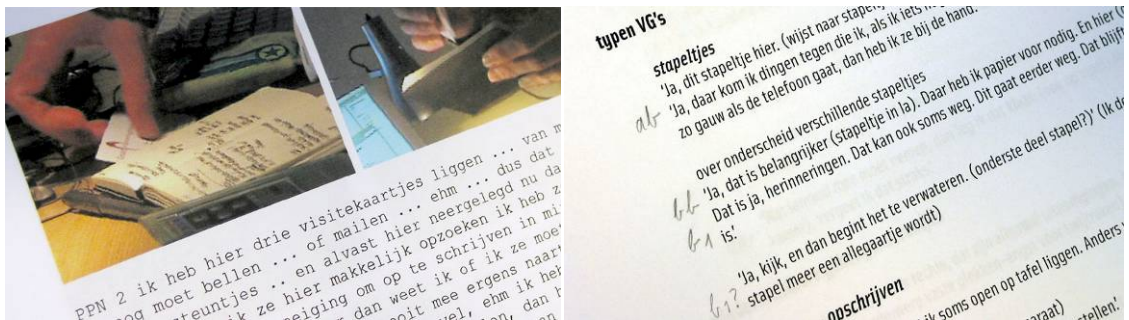 PPN 2 ik heb hier drie visitekaartjes liggen ... van m
nog moet bellen ... of mailen ... ehm ... dus dat
steuntjes ... en alvast hier neergelegd nu da
ik ze hier makkelijk opzoeken ik heb z
neiging om op te schrijven in mi
dan weet ik of ik ze moe
ooit mee ergens naar
ehm ik heb
dan h
typen VG's
stapeltjes
'Ja, dit stapeltje hier. (wijst naar stapelt
ab 'Ja, daar kom ik dingen tegen die ik, als ik iets
zo gauw als de telefoon gaat, dan heb ik ze bij de hand.
over onderscheid verschillende stapeltjes
bb 'Ja, dat is belangrijker (stapeltje in la). Daar heb ik papier voor nodig. En hier (
Dat is ja, herinneringen. Dat kan ook soms weg. Dit gaat eerder weg. Dat blijft
b1 is.'
'Ja, kijk, en dan begint het te verwateren. (onderste deel stapel?)' (Ik d
b1? stapel meer een allegaartje wordt)
opschrijven
ik soms open op tafel liggen. Anders
araat)
stellen.'